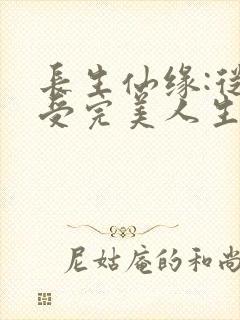 長生仙缘:從
受完美人生
尼姑庵的和尚